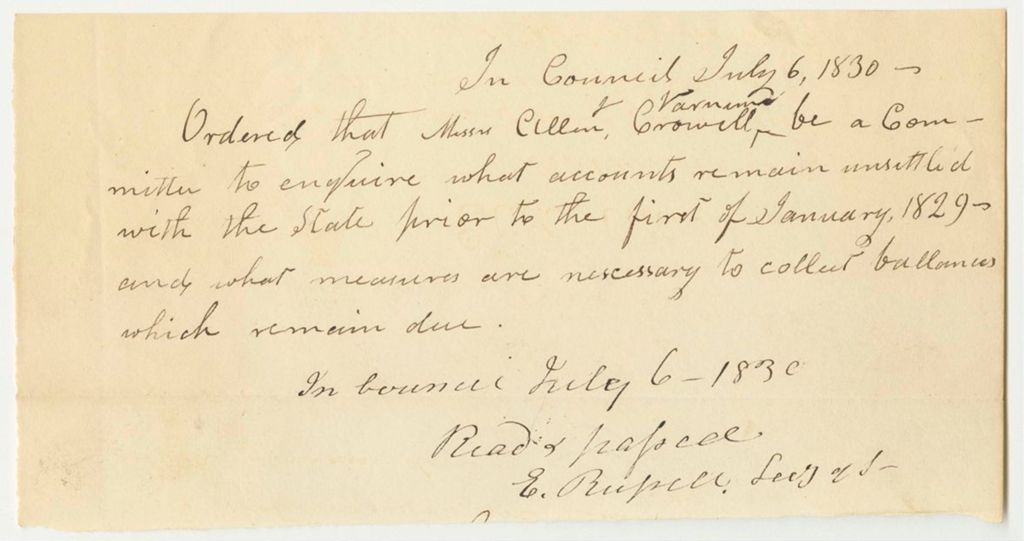 In Council July 6, 1830 –
Ordered that Messrs Allen, Crowell, & Varnum be a Com–
mittee to enquire what accounts remain unsettled
with the State prior to the first of January, 1829–
and what measures are necessary to collect ballances
which remain due.
In Council July 6 – 1830
Read & passed
E. Russell, Secy of S–